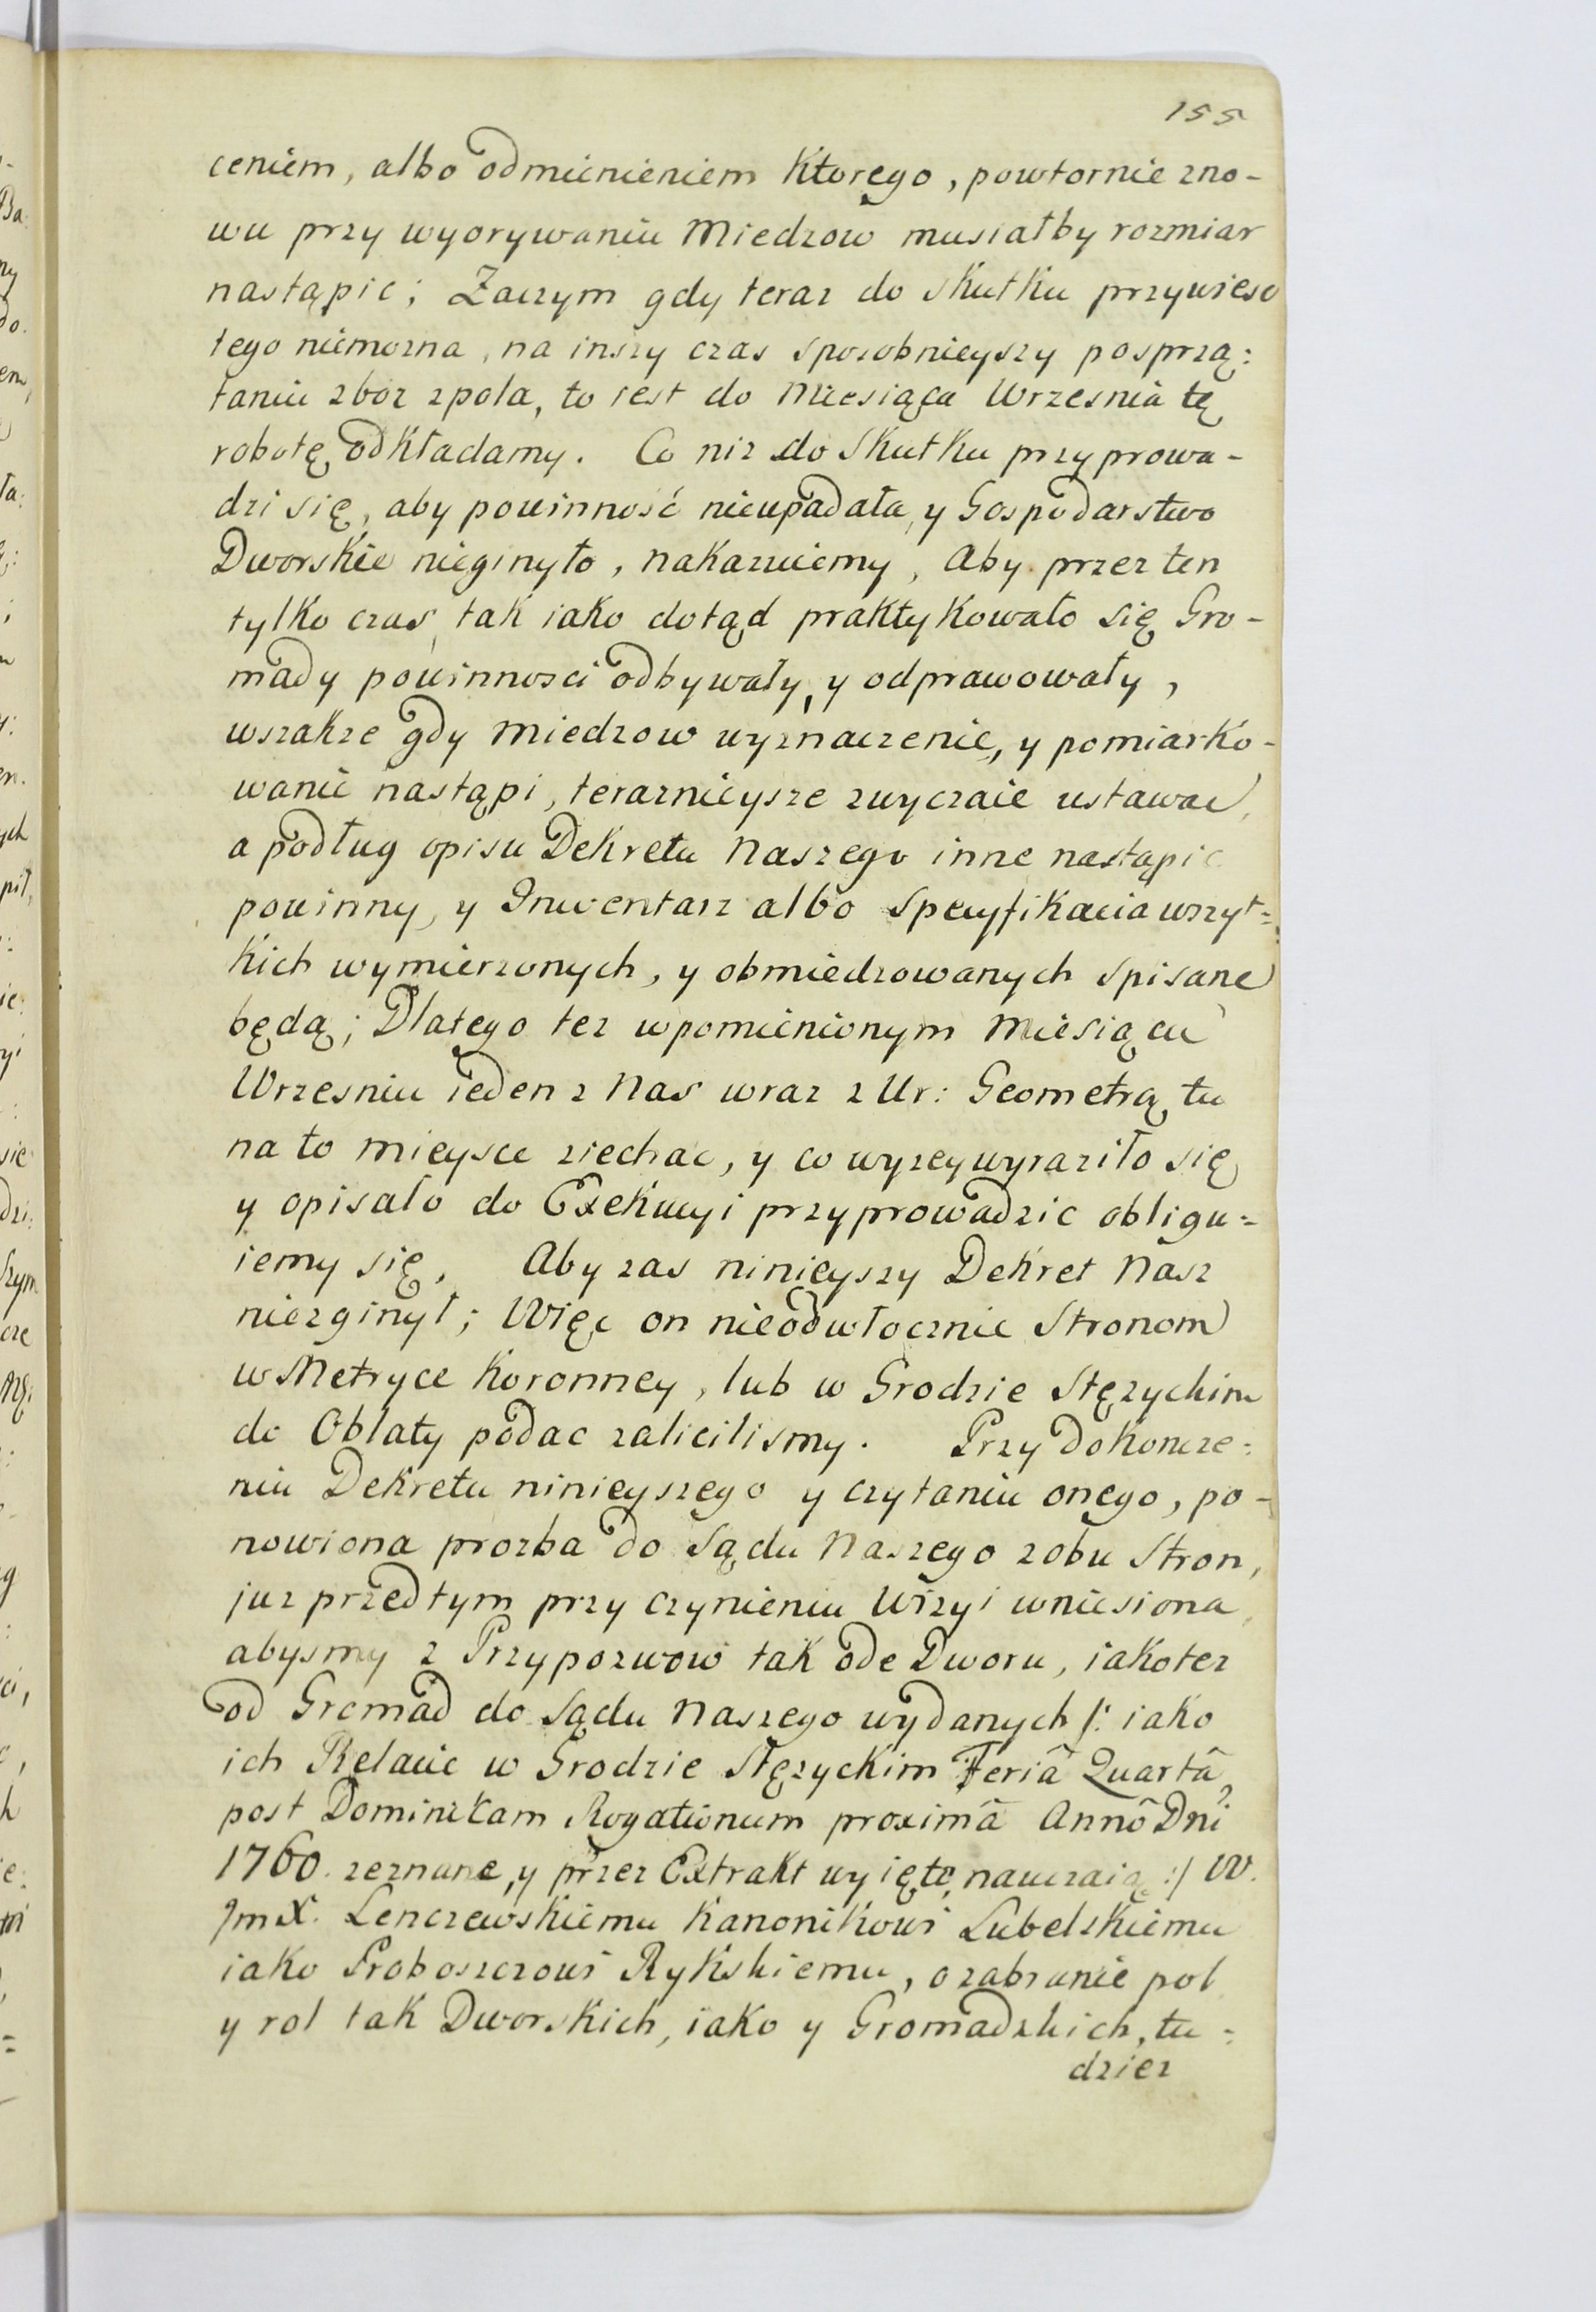 155
ceniem, albo odmienieniem Ktorego, powtornie zno-
wu przy wyorywaniu Miedzow musiałby rozmiar
nastąpic; Zaczym gdy teraz do skutku przywiesc
tego niemozna, na inszy czas sposobnieyszy posprzą:
taniu zboz zpola, to iest do Miesiąca Wrzesnia tę
robotę odkładamy. Co niz do Skutku przyprowa-
dzi się, aby powinność nieupadała, y Gospodarstwo
Dworskie nieginyło, nakazuiemy, Aby przez ten
tylko czas, tak iako dotąd praktykowało się Gro-
mady powinnosci odbywały, y odprawowały,
wszakze gdy Miedzow wyznaczenie, y pomiarko-
wanie nastąpi, teraznieysze zwyczaie ustawac,
a podług opisu Dekretu Naszego inne nastąpic
powinny, y Inwentarz albo Specyfikacia wszyt=
kich wymierzonych, y obmiedzowanych spisane
będą; Dlatego tez wpomienionym Miesiącu
Wrzesniu ieden z Nas wraz z Ur: Geometrą tu
na to mieysce ziechac, y co wyzey wyraziło się
y opisało do Exekucyi przyprowadzic obligu=
iemy się, Aby zas ninieyszy Dekret Nasz
niezginył; Więc on nieodwłocznie Stronom
w Metryce Koronney, lub w Grodzie Stęzyckim
do Oblaty podac zalicilismy. Przy Dokoncze=
niu Dekretu ninieyszego y czytaniu onego, po-
nowiona prozba do Sądu Naszego zobu Stron,
juz przedtym przy czynieniu Wizyi wniesiona,
abysmy z Przypozwow tak ode Dworu, iakotez
od Gromad do Sądu Naszego wydanych /: iako
ich Relacie w Grodzie Stęzyckim Feriâ Quartâ
post Dominicam Rogationum proximâ Annô Dni
1760. zeznane, y przez Extrakt wyięte, nauczaią :/ W.
Jm X. Lenczewskiemu Kanonikowi Lubelskiemu
iako Proboszczowi Rykskiemu, o zabranie pol
y rol tak Dworskich, iako y Gromadzkich, tu=
dziez